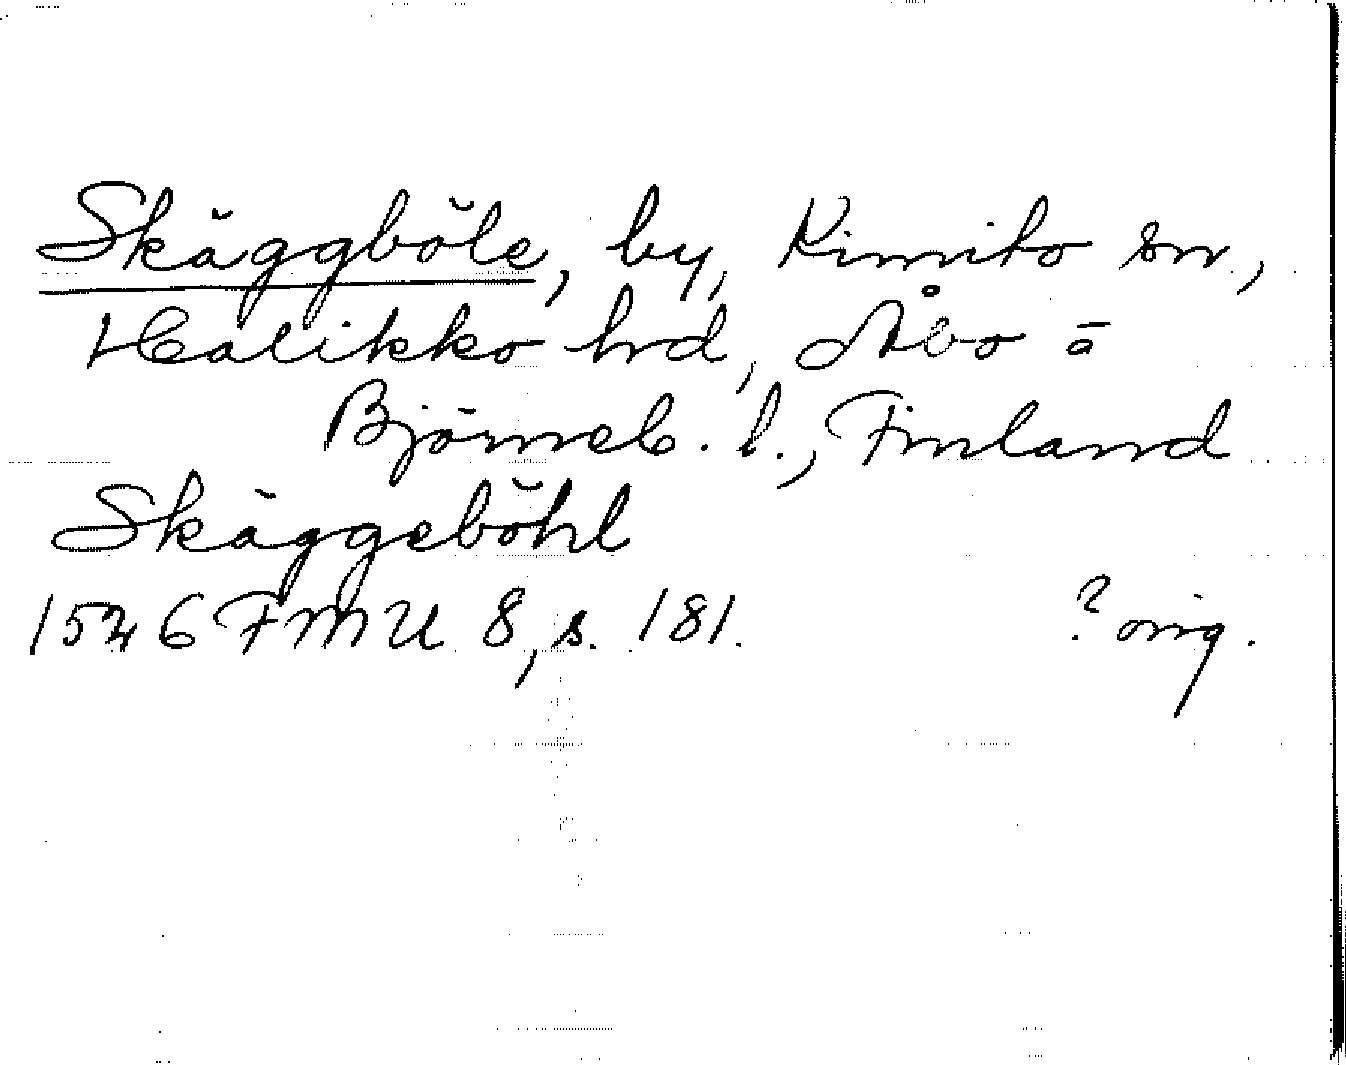 Skäggböle, by, Kimito sn.,
Halikko hrd, Åbo o
Björneb. l., Finland
Skäggeböhl
1546 FMU 8, s. 181. ? orig.